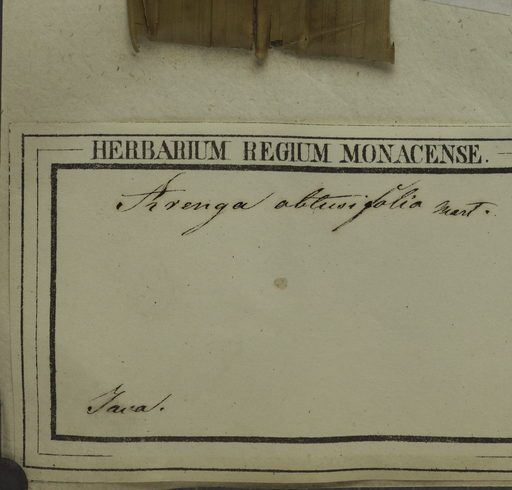 HERBARIUM REGIUM MONACENSE.
Arenga obtusifolia Mart.
Java.